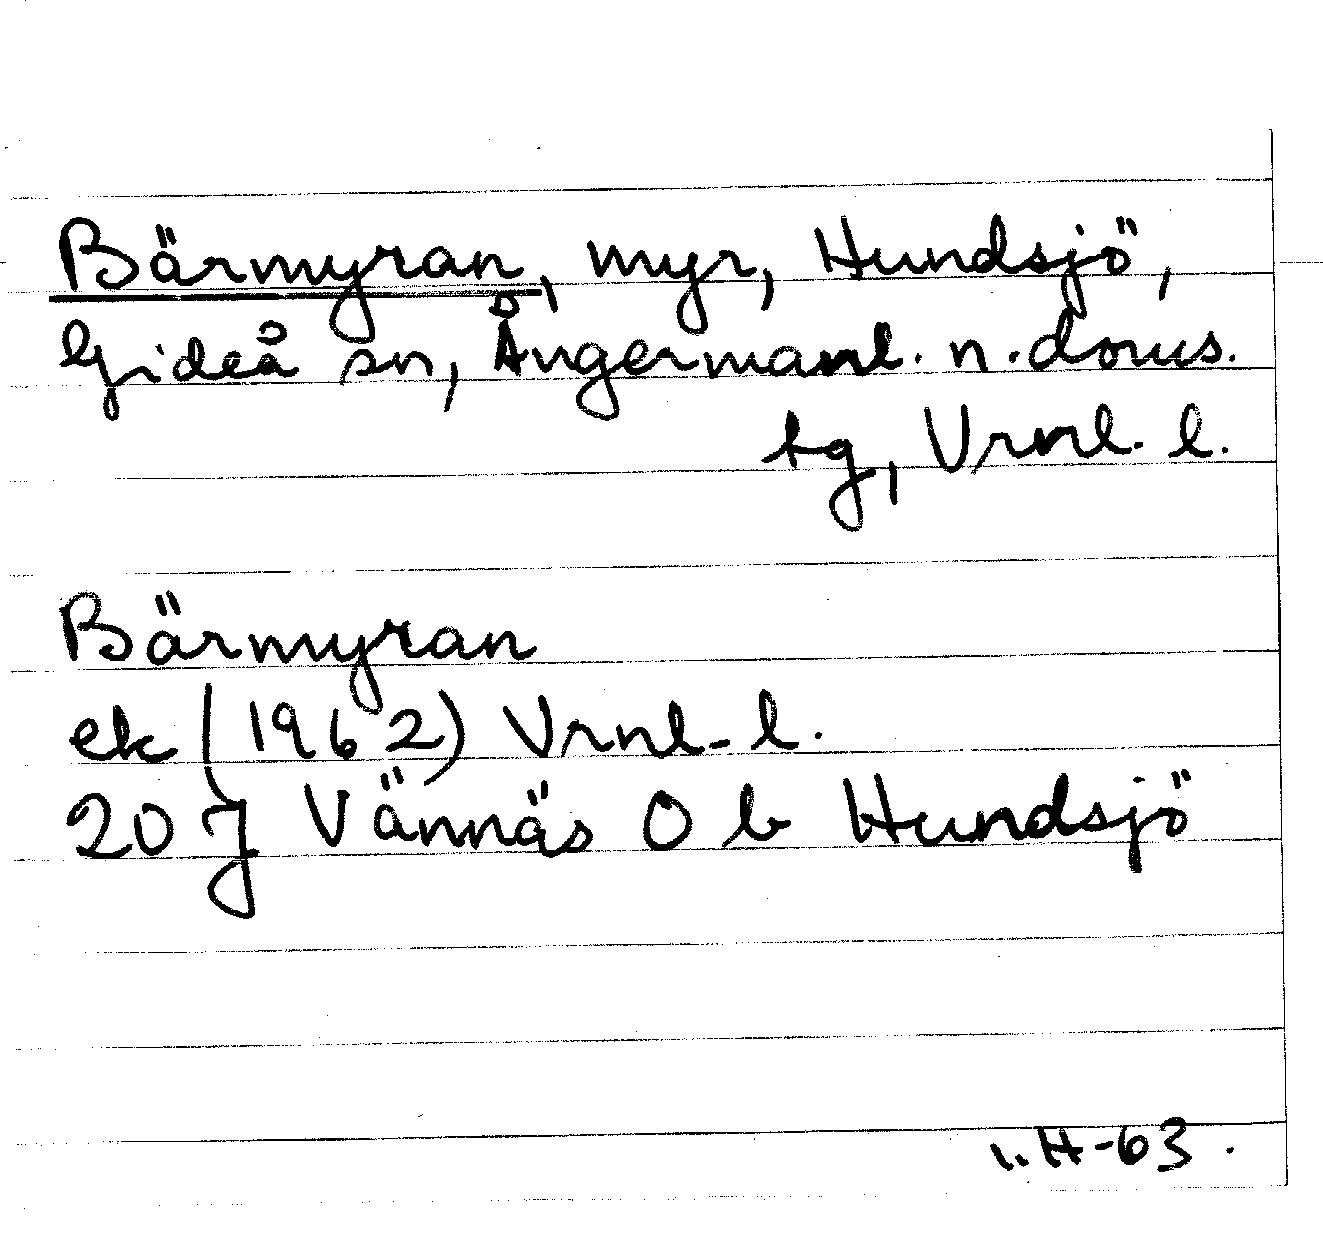 Bärmyran, myr, Hundsjö,
Gideå sn, Ångermanl. n. doms.
tg, Vrnl. l.
Bärmyran
ek (1962) Vrnl. l.
20 J Vännäs O b Hundsjö
H-63.